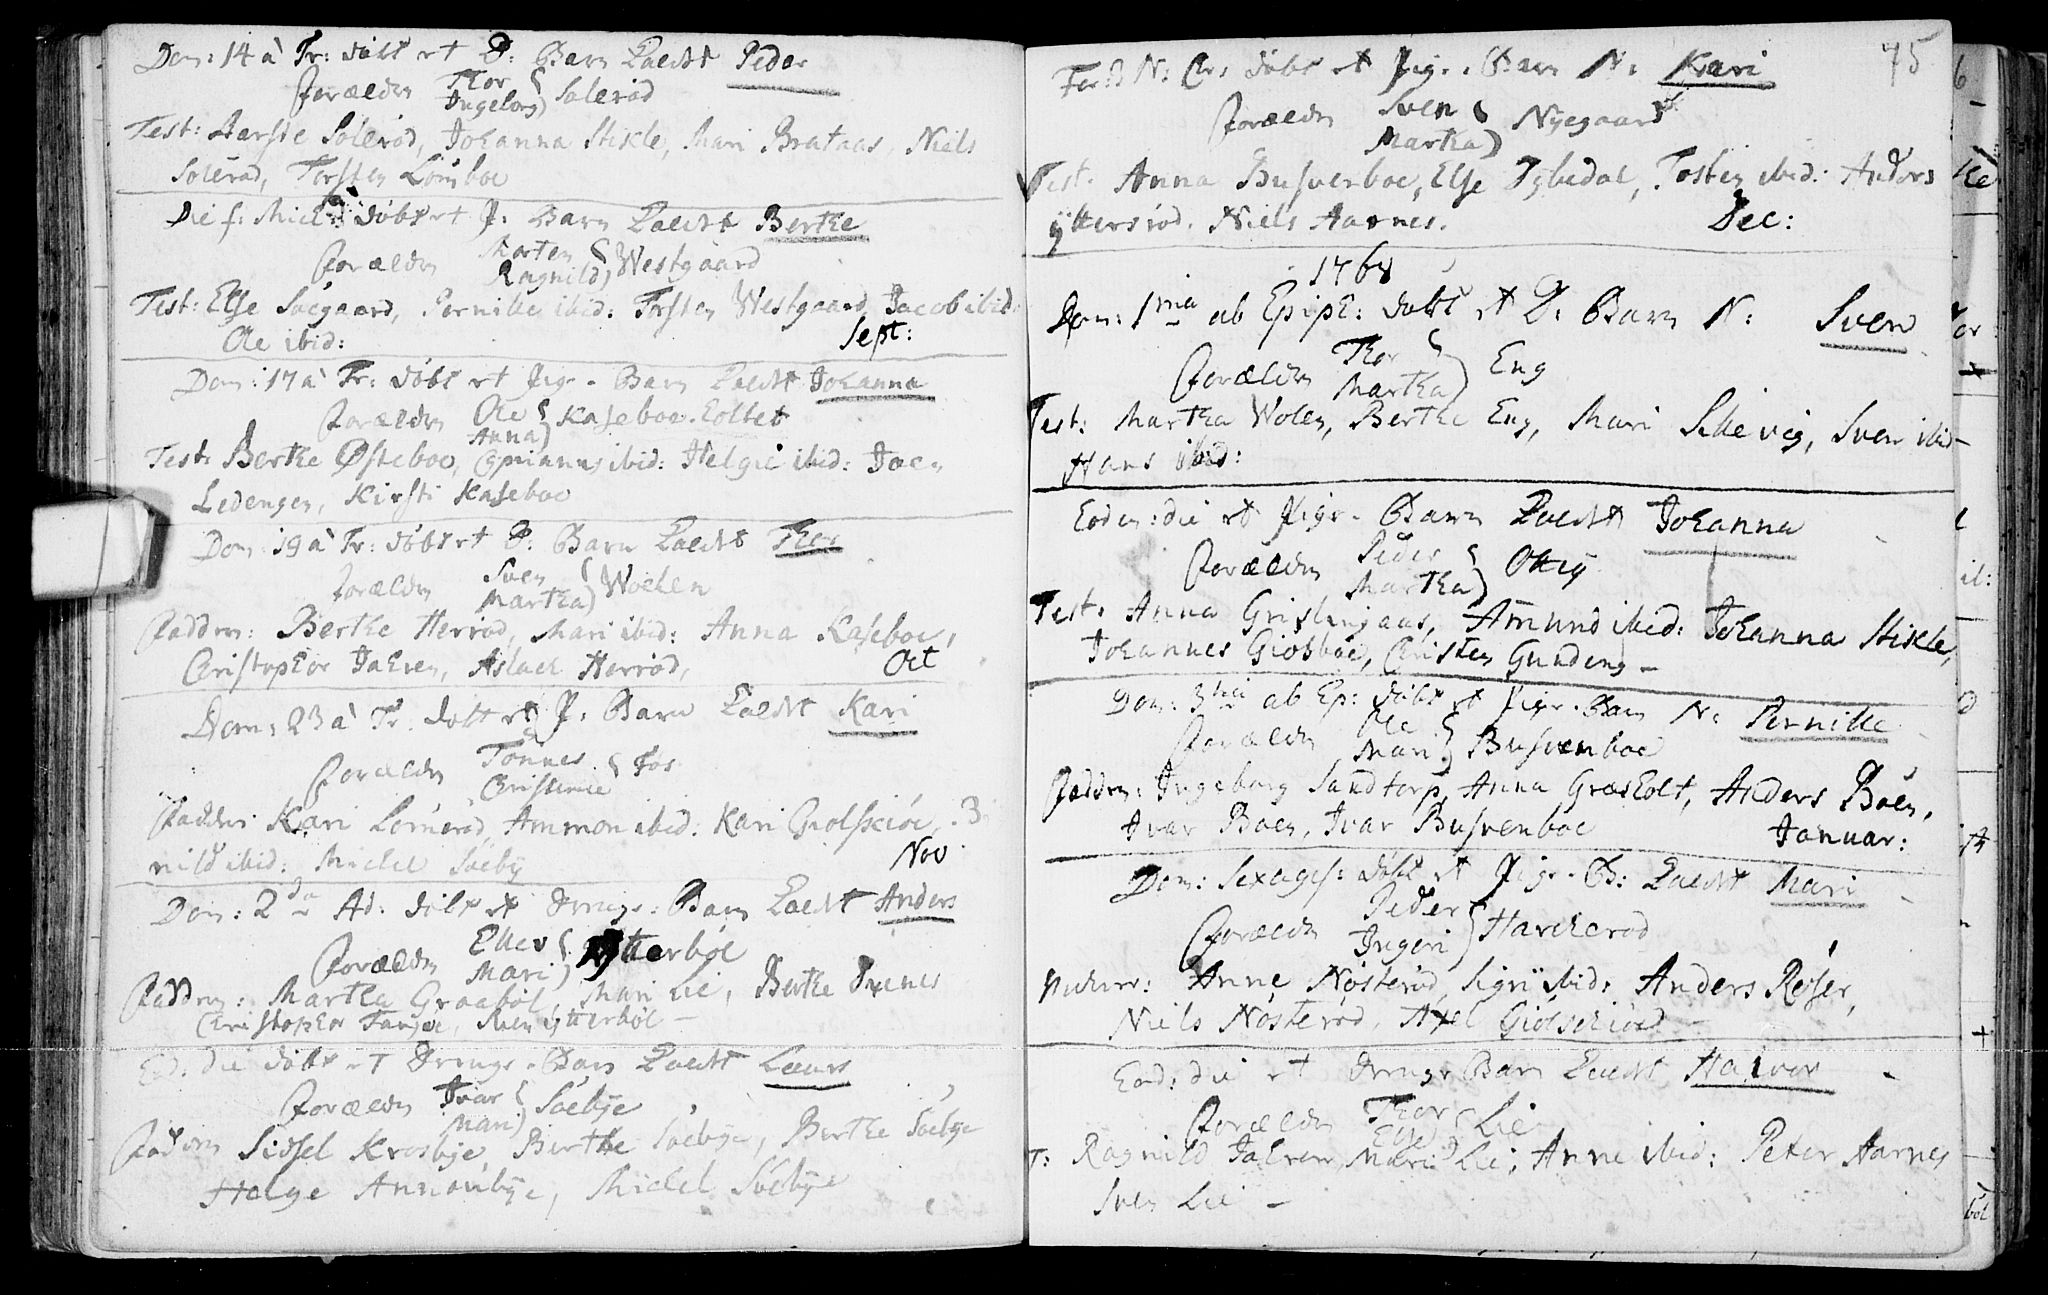 Dom: 14 a Tr: döbt et D: Barn kaldt Peder
Forældre Thor Ingeborg Solerød
Test: Aarsie Solerød, Johanna Stikle, Mari Brataas, Niels
Solerød, Torsten Lömboe
Die f: Mich: döbt et P: Barn kaldt Berthe
Forældre Morten Ragnild Westgaard
Test: Else Söegaard, Pernille ibid: Torsten Westgaard, Jacob ibid:
Ole ibid: Sept:
Dom: 17 a Tr: döbt et Pige-Barn kaldt Johanna
Forældre Ole Anna Kaseboe-holtet
Test: Berthe Østeboe, Cyprianus ibid: Helgie ibid: Joen
Ledengen, Kirsti Kaseboe
Dom: 19 a Tr: döbt et D: Barn kaldt Thor
Forældre Sven Martha Wohlen
Faddere: Berthe Herrød, Mari ibid: Anna Kaseboe,
Christopher Jahren, Aslach Herrød, Oct
Dom: 23 a Tr. døbt et P: Barn kaldt Kari
Forældre Tönnes Christence Fos
Faddere Kari Lømerød, Ammon ibid: Kari Giolskiöe,
nild ibid: Michel Söeby Nov
Dom: 2da Ad: döbt et Drenge-Barn kaldt Anders
Forældre Ellev Mari Ytterböl
Faddere: Martha Graaböl, Mari Lie, Berthe
Christopher Tangen, Ytterböl –
Eod: die döbt et Drenge-Barn kaldt Laurs
Forældre Ivar Mari Söebye
Faddere Sidsel Krosbye Berthe Söebye, Berthe Söebye
Helge Annonbye, Michel Söebye
75
Fer: N: Chr: döbt et Pige-Barn N: Kari
Forældre Sven Martha Nyegaard
Test: Anna Busverboe, Else Dybedal, Tosten ibid: Anders
Yttersröd. Niels Aarnes. Dec:
1768
Dom: 1ma ab Epiph: döbt et D: Barn N: Sven
Forældre Thor Martha Eng
Test: Martha Wolen, Berthe Eng, Mari Sillevig, Sven ibid–
Hans ibid:
Eodem: die et Pige-Barn kaldt Johanna
Forældre Peder Martha Ottey
Test: Anna Grislingaas, Amund ibid: Johanna Stikle,
Johannes Giosboe, Christen Gundeng –
Dom: 3tia ab Ep: döbt et Pige-Barn N: Pernille
Forældre Ole Mari Busvenboe
Faddere: Ingeborg Sandtorp, Anna Græsholt, Anders Boen,
Ivar Boen, Ivar Busvenboe Januar:
Dom: Sexages: döbt et Pige-B: kaldt Mari
Forældre Peder Ingeri Harcherød
Anne Nösteröd, Sigri ibid: Anders Røser,
Niels Nösteröd, Axel Giölschiöed
Eod: die et Drenge Barn kaldt Halvor
Forældre Thor Else Lie
T: Ragnild Jahren, Mari Lie, Anne ibid: Peter Aarnes
Sven Lie –